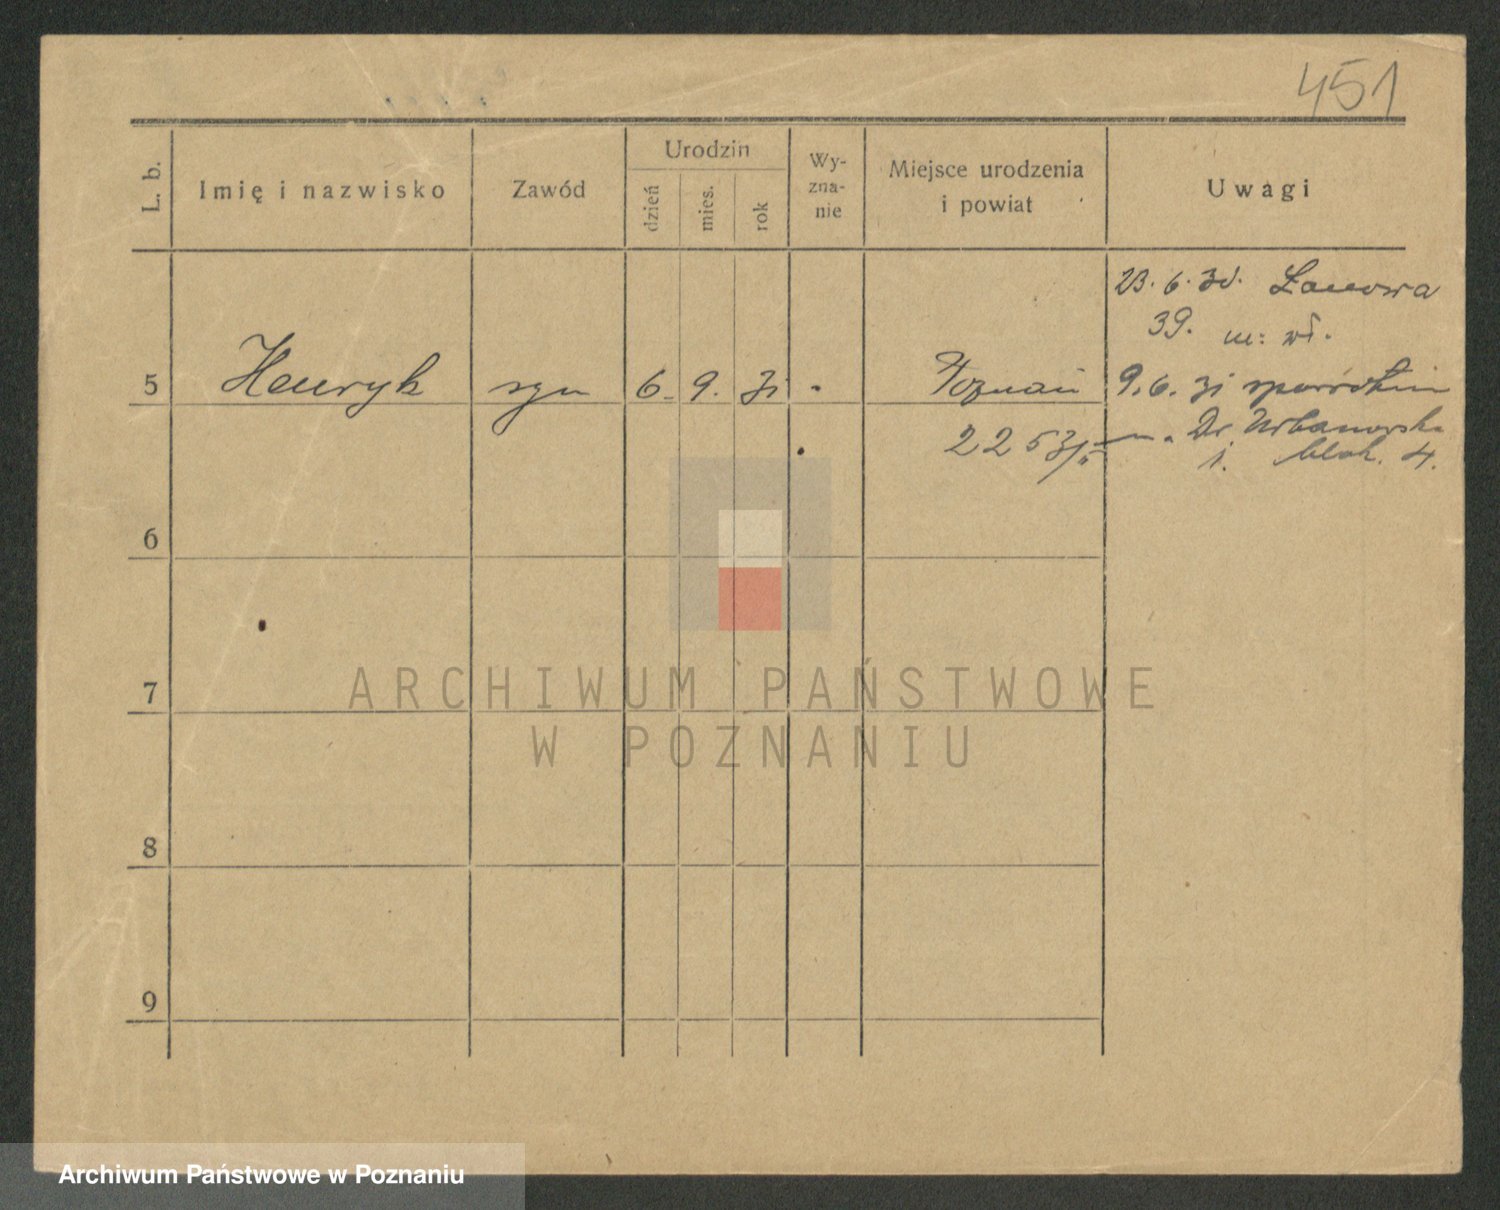 451
L. b.
Imię i nazwisko
Zawód
Urodzin
dzień
mies.
rok
Wy-
zna-
nie
Miejsce urodzenia
i powiat
Uwagi
23. 6. 30. Łanowa
39. m: wł.
5 Henryk syn 6. 9. 31 Poznań 9. 6. 31
2253/II Dr. Urbanowska
1. blok. 4.
6
7
8
9
ARCHIWUM PAŃSTWOWE
W POZNANIU
Archiwum Państwowe w Poznaniu